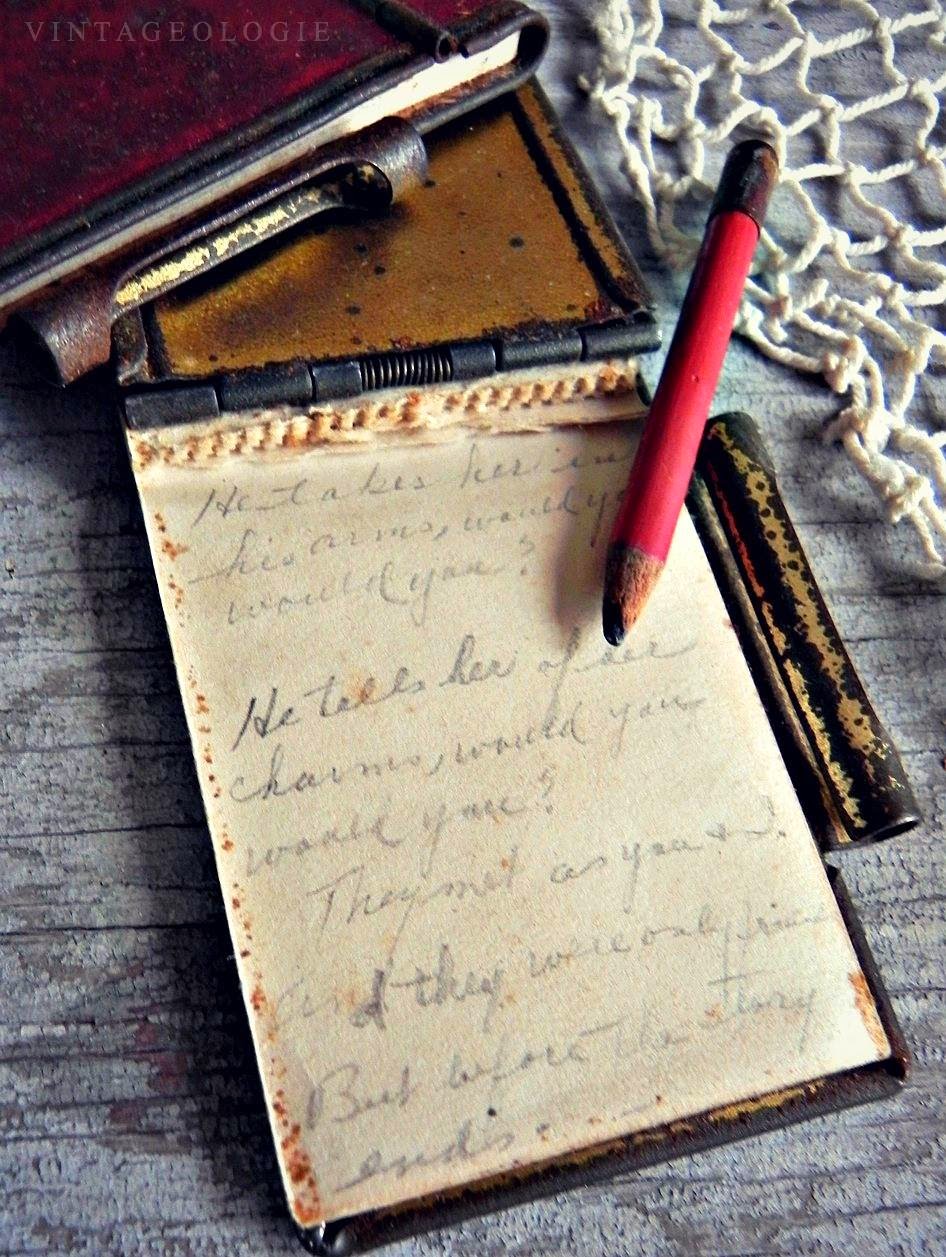 VINTAGEOLOGIE
He takes her in
his arms, would yo
would you?
He tells her of her
charms, would you
would you?
They met as you & I.
and they were only frien
But before the story
ends.